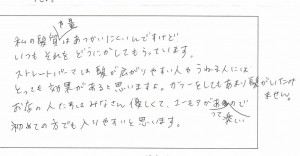 私の髪質や量はあつかいにくいんですけど
いつもそれをどうにかしてもらっています。
ストレートパーマは髪が広がりやすい人やうねる人には
とっても効果があると思いますよ。カラーをしてもあまり髪がいたみません。
お店の人たちはみなさん優しくて、ユーモアがあって楽しい
初めての方でも入りやすいと思います。